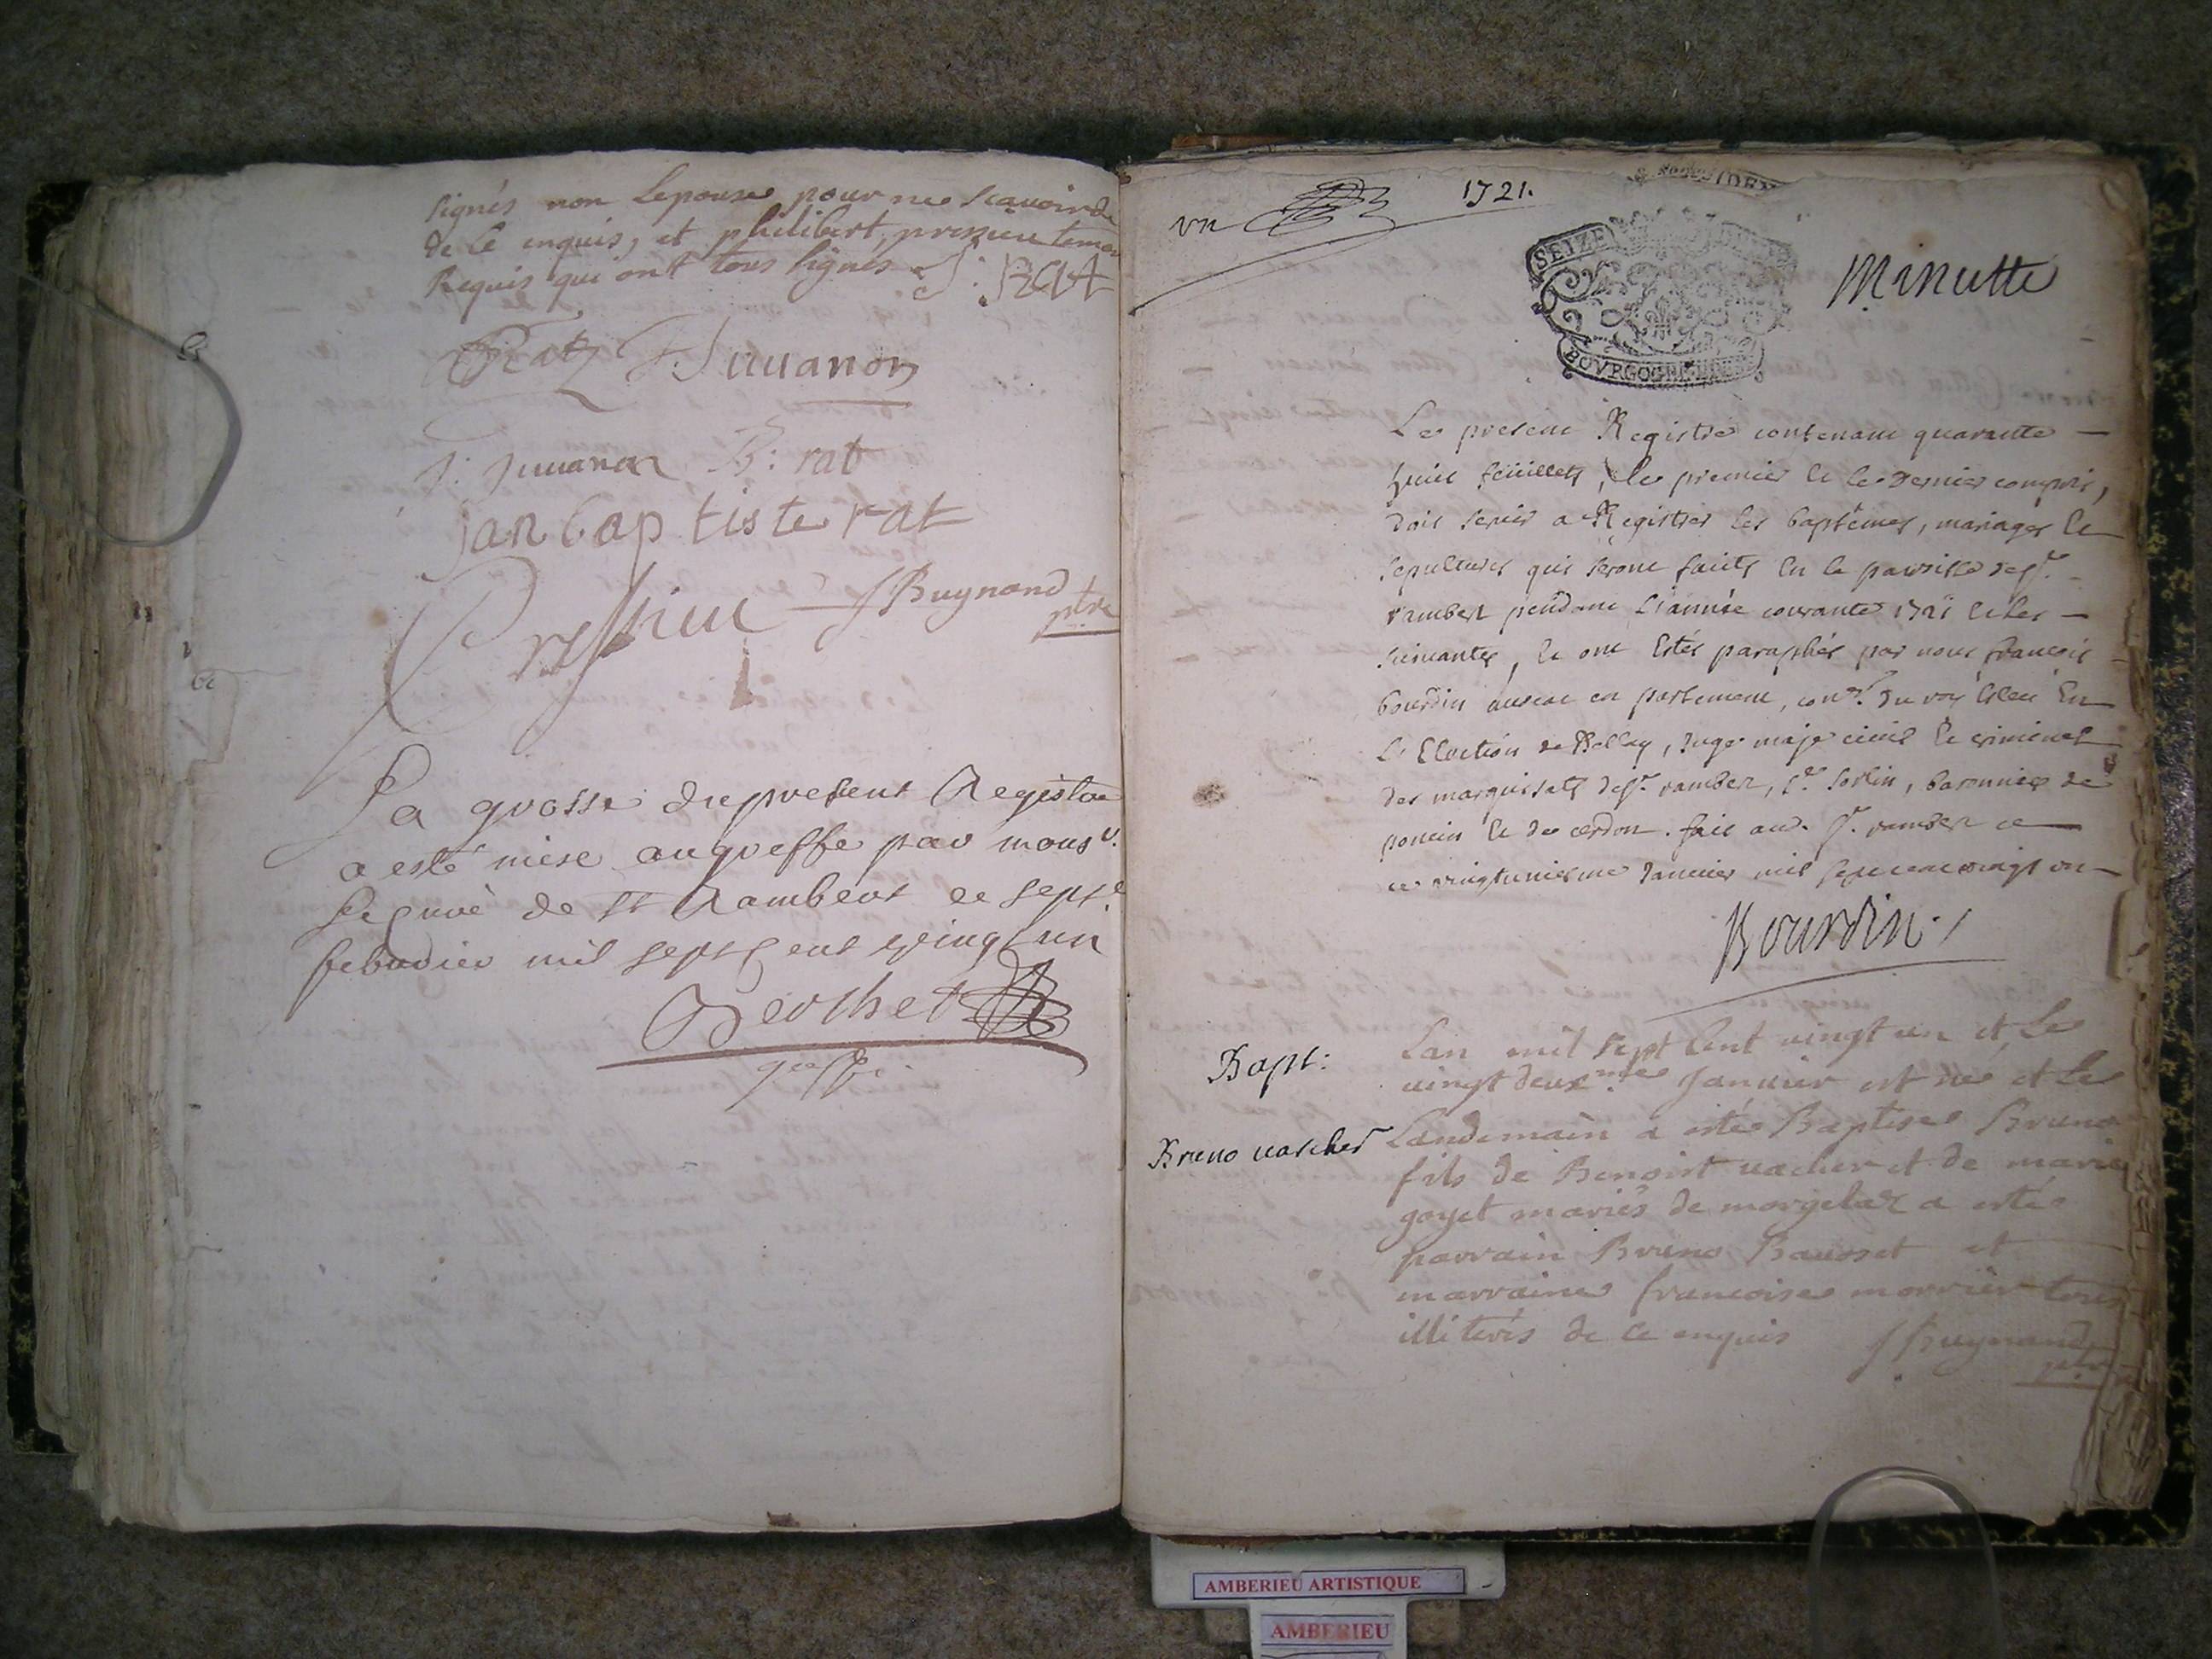 signés non Lepouse pour ne scavoir de
de Ce enquis, et philibert, pressieu temoin
Requis qui ont tous signés J: RAt
Ratz F Juuanon
J: Juuanon B: rat
janbaptiste rat
Pressieu J Buynand
ptre
La grosse du present Registre
a esté mise au greffe par mons.r
le curé de st Rambert ce sept.e
febvrier mil sept cent vingt un
Berthet
greffi
vn 1721.
SEIZE DEN
BOVRGOGNE
Minutte
Le present Registre contenant quarante
huit feüillets, le premier et le dernier compris,
doit servir a Registrer les baptêmes, mariages et
sepultures qui seront faits en la paroisse de st.
rambert pendant L'année courante 1721 et les
suivantes, et ont Estés paraphés par nous francois
bourdin avocat en parlement, con.er du roy Esleu En
L'Election de Belley, Juge maje civil et criminel
des marquisats de st. rambert, st. sorlin, baronnies de
poncin et de cerdon. fait aud. st. rambert ce
ce vingtuniesme Janvier mil sept cent vingt un
Bourdin
Bapt:
Lan mil sept Cent vingt un et Le
vingt deux.me Januier est ne et Le
Bruno vascher
Landemain a esté Baptise Bruno
fils de Benoist vacher et de marie
goyet mariés de morgelaz a esté
parrain Bruno Bausset et
marraine francoise morrier tous
illiterés de Ce enquis J Buynand
ptre
AMBERIEU ARTISTIQUE
AMBERIEU